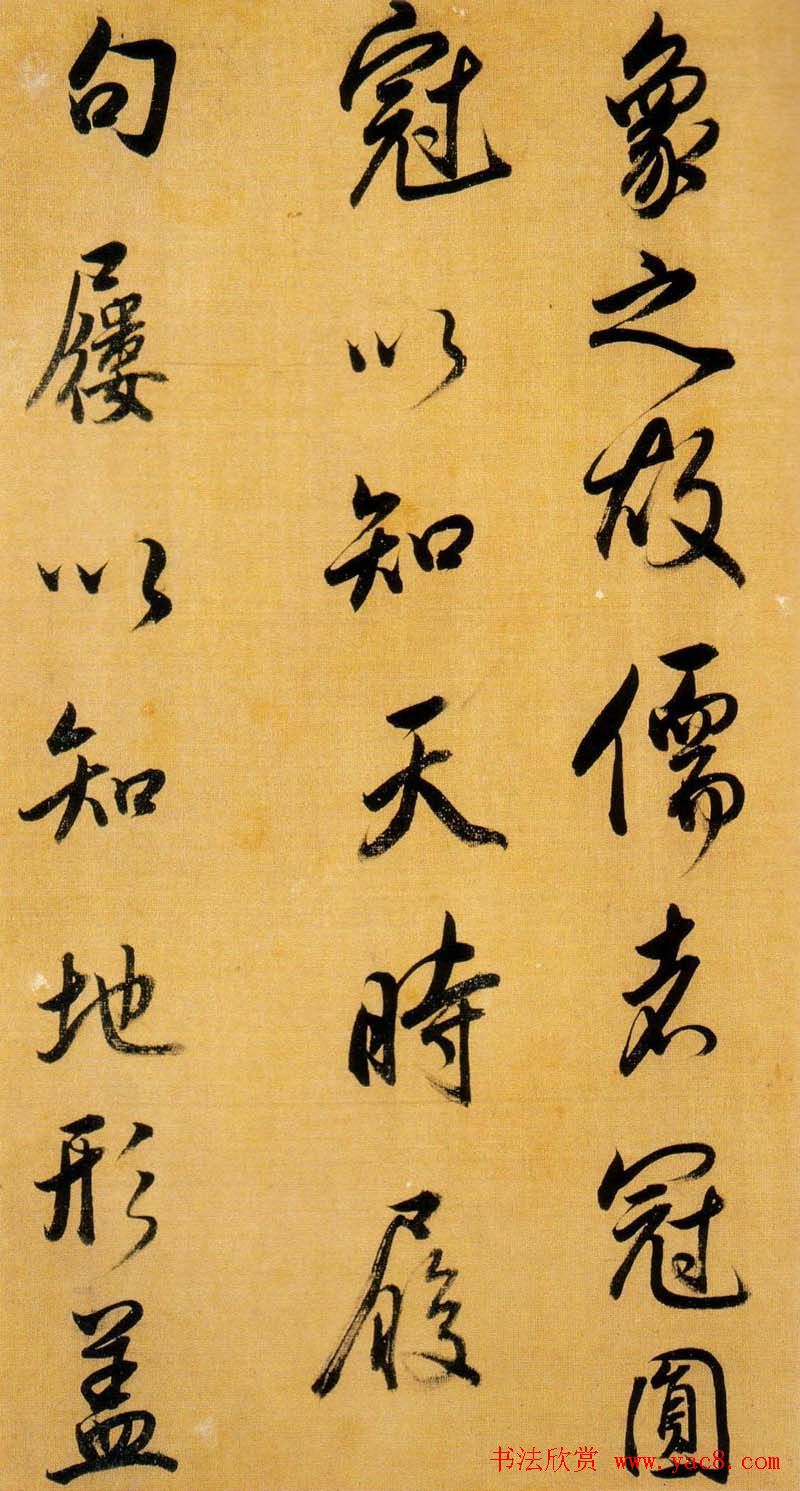 象之故儒者冠圓
冠以知天時履
句屨以知地形盖
书法欣赏 www.yac8.com